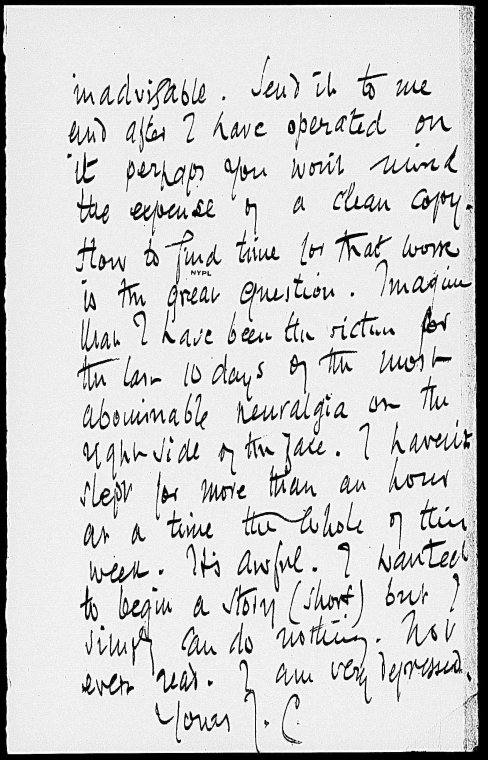 inadvisable. Send it to me
and after I have operated on
it perhaps you won't mind
the expense of a clean copy.
How to find time for that work
NYPL
is the great question. Imagine
that I have been the victim for
the last 10 days of the most
abominable neuralgia on the
right side of the face. I haven't
slept for more than an hour
at a time the whole of this
week. It's awful. I wanted
to begin a story (short) but I
simply can do nothing. Not
even read. I am very depressed.
Yours J. C.